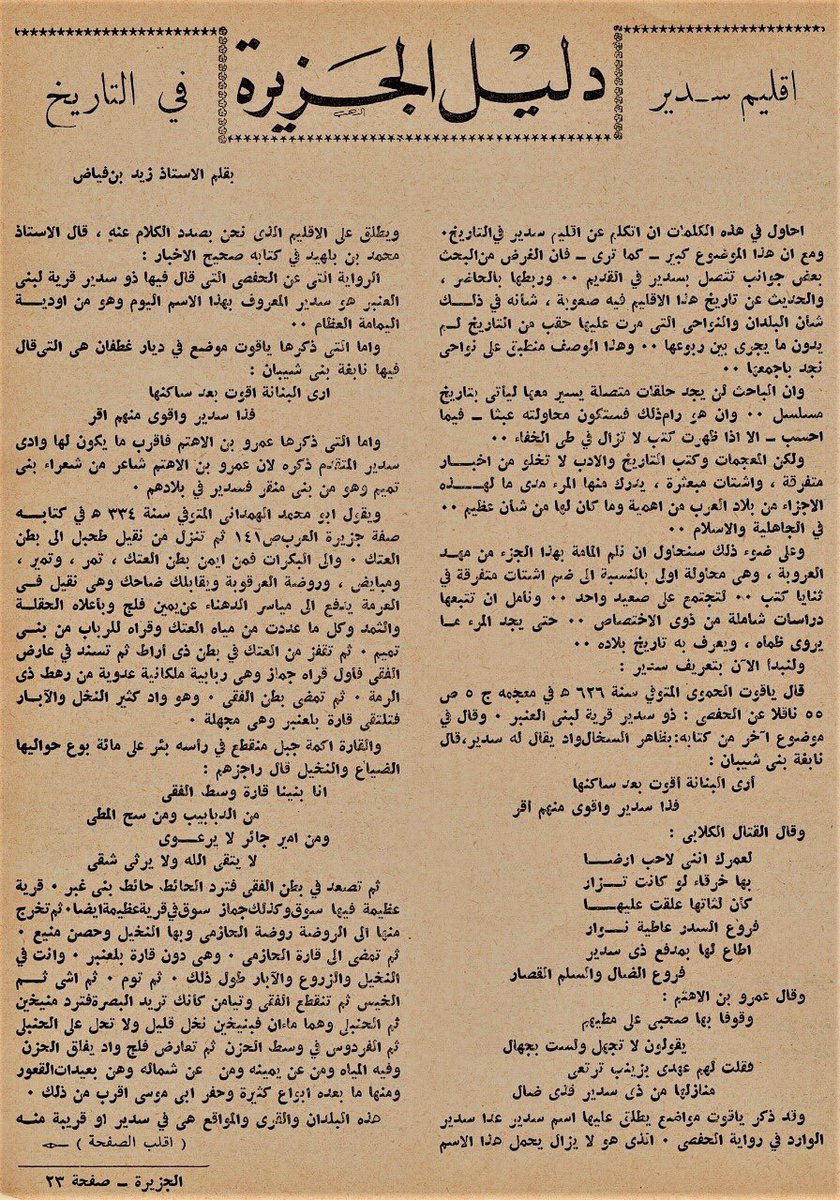 اقليم سدير
دليل الجزيرة
في التاريخ
بقلم الاستاذ زيد بن فياض
احاول في هذه الكلمات ان اتكلم عن اقليم سدير في التاريخ٠
ومع ان هذا الموضوع كبير ــ كما ترى ــ فان الغرض من البحث
بعض جوانب تتصل بسدير في القديم ٠٠ وربطها بالحاضر ،
والحديث عن تاريخ هذا الاقليم فيه صعوبة ، شأنه في ذلــك
شأن البلدان والنواحى التى مرت عليها حقب من التاريخ لــم
يدون ما يجرى بين ربوعها ٠٠ وهذا الوصف منطبق على نواحى
نجد بأجمعها ٠٠
وان الباحث لن يجد حلقات متصلة يسير معها ليأتى بتاريخ
مسلسل ٠٠ وان هو رام ذلك فستكون محاولته عبثا ــ فيما
احسب ــ الا اذا ظهرت كتب لا تزال في طى الخفاء ٠٠
ولكن المعجمات وكتب التاريخ والادب لا تخلو من اخبــار
متفرقة ، واشتات مبعثرة ، يدرك منها المرء مدى ما لهــذه
الاجزاء من بلاد العرب من اهمية وما كان لها من شأن عظيم ٠٠
في الجاهلية والاسلام ٠٠
وعلى ضوء ذلك سنحاول ان نلم المامة بهذا الجزء من مهــد
العروبة ، وهى محاولة اولى بالنسبة الى ضم اشتات متفرقة في
ثنايا كتب ٠٠ لتجتمع على صعيد واحد ٠٠ ونأمل ان تتبعها
دراسات شاملة من ذوى الاختصاص ٠٠ حتى يجد المرء مما
يروى ظمأه ، ويعرف به تاريخ بلاده ٠٠
ولنبدأ الآن بتعريف سدير :
قال ياقوت الحموى المتوفي سنة ٦٢٦ هـ في معجمه ج ٥ ص
٥٥ ناقلا عن الحفصى : ذو سدير قرية لبنى العنبر ٠ وقال في
موضوع آخر من كتابه:بظاهر السخال واد يقال له سدير،قال
نابغة بنى شيبان :
أرى البنانة أقوت بعد ساكنها
فذا سدير واقوى منهم أقر
وقال القتال الكلابى :
لعمرك اننى لاحب ارضــا
بها خرقاء لو كانت تــزار
كأن لثاتها علقت عليهــا
فروع السدر عاطية نــوار
اطاع لها بمدفع ذى سدير
فروع الضال والسلم القصار
وقال عمرو بن الاهتم :
وقوفا بها صحبى على مطيهم
يقولون لا تجهل ولست بجهال
فقلت لهم عهدى بزينب ترتعى
منازلها من ذى سدير فذى ضال
وقد ذكر ياقوت مواضع يطلق عليها اسم سدير عدا سدير
الوارد في رواية الحفصى ٠ الذى هو لا يزال يحمل هذا الاسم
ويطلق على الاقليم الذى نحن بصدد الكلام عنه ، قال الاستاذ
محمد بن بلهيد في كتابه صحيح الاخبار :
الرواية التى عن الحفصى التى قال فيها ذو سدير قرية لبنى
العنبر هو سدير المعروف بهذا الاسم اليوم وهو من اوديــة
اليمامة العظام ٠٠
واما التى ذكرها ياقوت موضع في ديار غطفان هى التى قال
فيها نابغة بنى شيبان :
ارى البنانة اقوت بعد ساكنها
فذا سدير واقوى منهم اقر
واما التى ذكرها عمرو بن الاهتم فاقرب ما يكون لها وادى
سدير المتقدم ذكره لان عمرو بن الاهتم شاعر من شعراء بنى
تميم وهو من بنى منقر فسدير في بلادهم ٠
ويقول ابو محمد الهمدانى المتوفي سنة ٣٣٤ هـ في كتابــه
صفة جزيرة العرب ص١٤١ ثم تنزل من نقيل طحبل الى بطن
العتك ٠ والى البكرات فمن ايمن بطن العتك ، تمر ، وتمير ،
ومبايض ، وروضة العرقوبة ويقابلك ضاحك وهى نقيل فــى
العرمة يدفع الى مياسر الدهناء عن يمين فلج وبأعلاه الحقلــة
والثمد وكل ما عددت من مياه العتك وقراه للرباب من بنــى
تميم ٠ ثم تقفز من العتك في بطن ذى أراط ثم تسند في عارض
الفقى فأول قراه جماز وهى ربابية ملكانية عدوية من رهط ذى
الرمة ٠ ثم تمضى بطن الفقى ٠ وهو واد كثير النخل والآبار
فتلتقى قارة بلعنبر وهى مجهلة ٠
والقارة اكمة جبل منقطع في رأسه بئر على مائة بوع حواليها
الضياع والنخيل قال راجزهم :
انا بنينا قارة وسط الفقى
من الدبابيب ومن سح المطى
ومن امير جائر لا يرعــوى
لا يتقى الله ولا يرثى شقى
ثم تصعد في بطن الفقى فترد الحائط حائط بنى غبر ٠ قرية
عظيمة فيها سوق وكذلك جماز سوق في قرية عظيمة ايضا٠ ثم تخرج
منها الى الروضة روضة الحازمى وبها النخيل وحصن منيع ٠
ثم تمضى الى قارة الحازمى ٠ وهى دون قارة بلعنبر ٠ وانت في
النخيل والزروع والآبار طول ذلك ٠ ثم توم ٠ ثم اشى ثــم
الخيس ثم تنقطع الفقى وتيامن كأنك تريد البصرة فترد منيخين
ثم الحنبلى وهما ماءان فمنيخين نخل قليل ولا تحل على الحنبلى
ثم الفردوس في وسط الحزن ثم تعارض فلج واد يفلق الحزن
وفيه المياه ومن عن يمينه ومن عن شماله وهن بعيدات القعور
ومنها ما بعده ابواع كثيرة وحفر ابى موسى اقرب من ذلك ٠
هذه البلدان والقرى والمواقع هى في سدير او قريبة منــه
( اقلب الصفحة )
الجزيرة ــ صفحة ٢٣